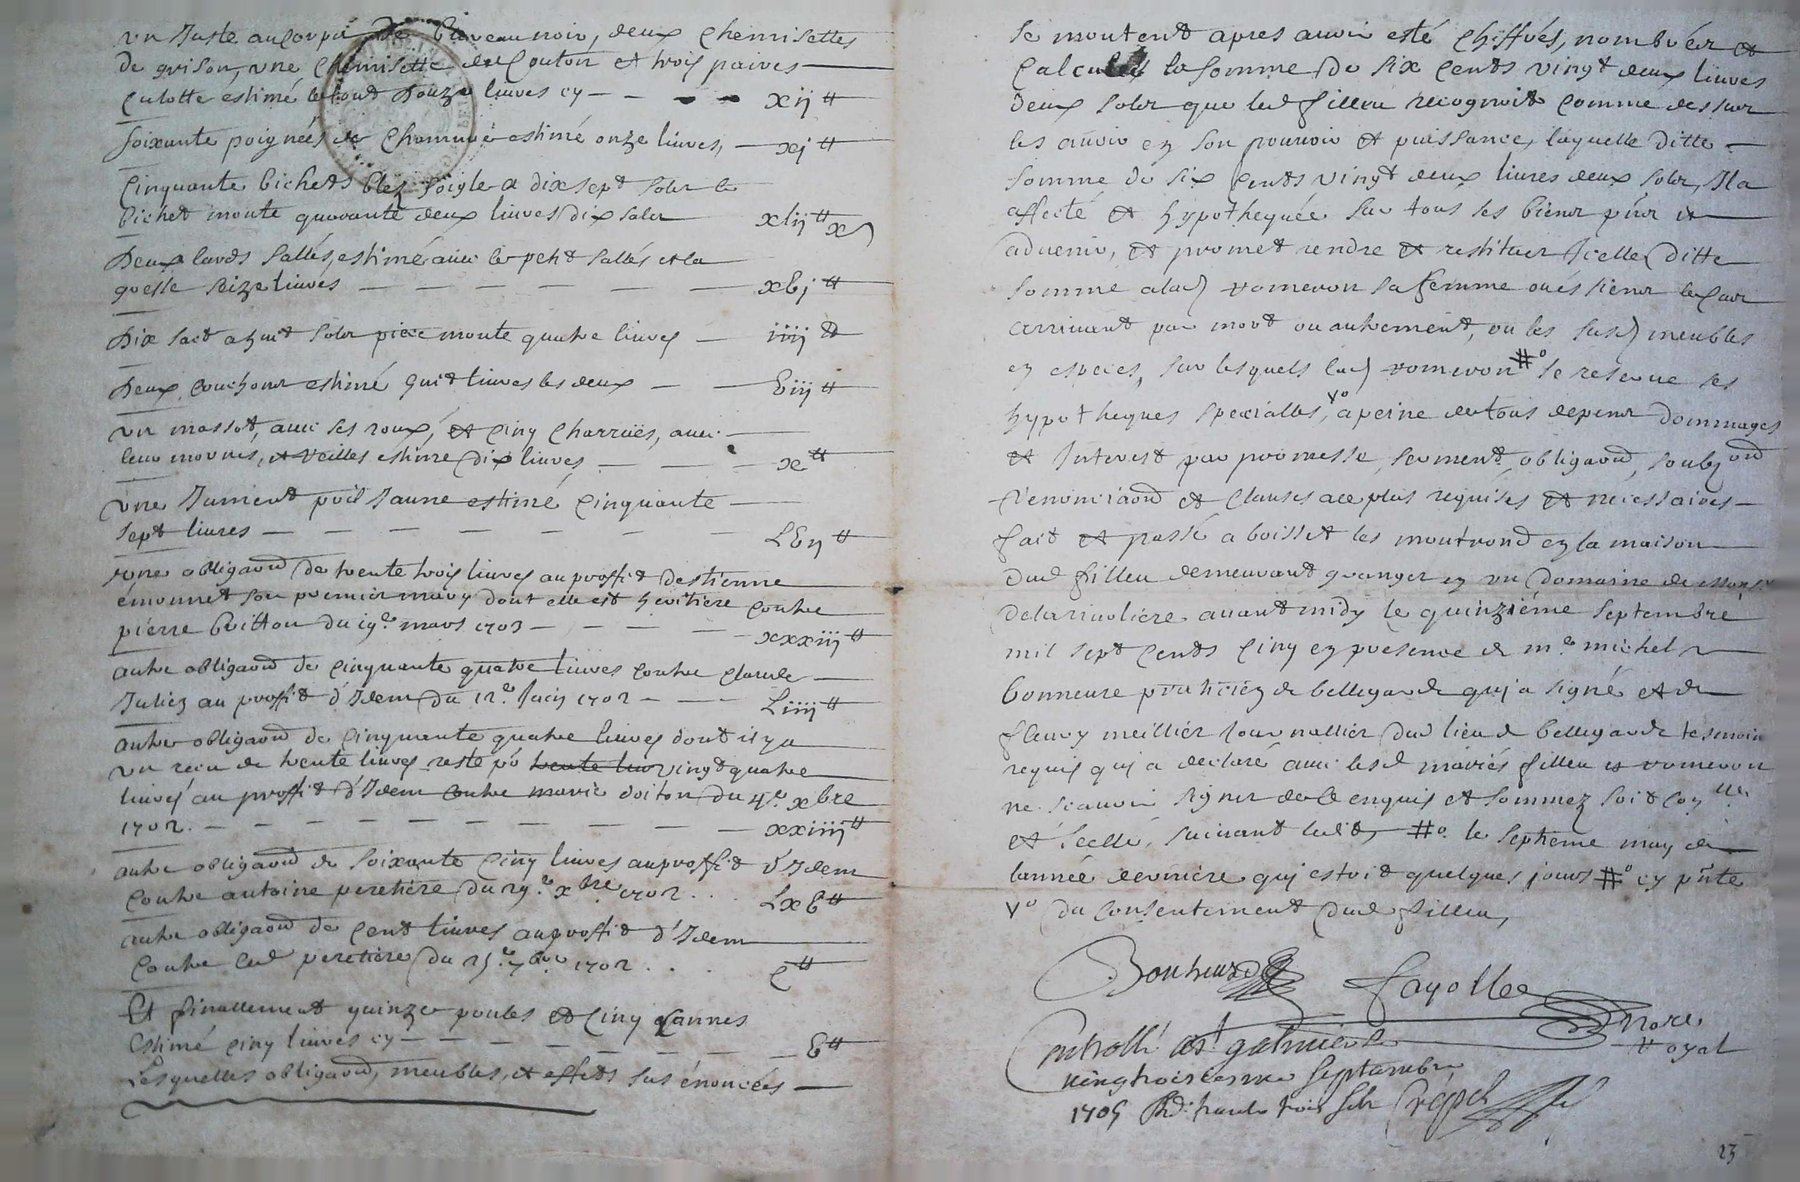 un Juste au corps de bureau noir, deux chemisettes
de grison, une chemisette de Couton et trois paires
Culotte estimé le tout Douze livres cy xij ₶
Soixante poignées de Chamure estimé onze livres, xj ₶
Cinquante bichets bled soigle a dix sept solz le
bichet monte quarante deux livres dix solz xlij ₶ x s
Deux lards sallés, estimé avec le petit sallés et la
gresse seize livres xbj ₶
Dix sacs a huit solz piece monte quatre livres iiij ₶
Deux couchons estimé huit livres les deux biij ₶
un massot, avec ses roux, et cinq charrües, avec
leur mornes, et veilles estimé dix livres x ₶
une Jument poil Jaune estimé Cinquante
sept livres Lbij ₶
une obligaõn de trente trois livres au proffit destienne
émonnet son premier mary dont elle est heritiere contre
pierre boitton du 19e mars 1703 xxxiij ₶
autre obligaõn de cinquante quatre livres contre Claude
Julien au proffit d'Idem du 12e Juin 1702 Liiij ₶
autre obligaõn de cinquante quatre livres dont il y a
un receu de trente livres reste po trente livr vingt quatre
livres au proffit d'Idem contre marie doiton du 4e xbre
1702. xxiiij ₶
autre obligaõn de soixante cinq livres au proffit d'Idem
Contre antoine peretiere du 29e xbre 1702 Lxb ₶
autre obligaõn de cent livres au proffit d'Idem
Contre led peretiere du 25e 7bre 1702 C ₶
Et finallement quinze poules et cinq cannes
Estimé cinq livres cy b ₶
Lesquelles obligaõn, meubles, et effects sus énoncées
se montent apres avoir esté chiffrés, nombrés et
Calculés la somme de six cents vingt deux livres
deux solz que led filleu recognoit comme dessus
les avoir en son pouvoir et puissance, laquelle ditte
somme de six cents vingt deux livres deux solz, Il a
affecté et hypothequée sur tous ses biens pñs et
advenir, et promet rendre et restituer Icelle ditte
somme a lad vomeron sa femme ou és siens le cas
arrivant par mort ou autrement, ou les susd meubles
en especes, sur lesquels lad vomeron #o se reserve ses
hypotheques specialles, Vo a peine de tous depens dommages
et Interest par promesse, serment, obligaõn, soubzõn
renonciaõn et clauses a ce plus requises et necessaires
fait et passé a boisset les montrond en la maison
dud filleu demeurant granger en un domaine de monsr
delarivoliere avant midy le quinziéme septembre
mil sept cents cinq en presence de me michel
bonneure praticien de bellegarde qui a signé et de
fleury meillier Journallier dud lieu de bellegarde tesmoin
requis qui a declaré avec lesd mariés filleu et vomeron
ne sçavoir signer de ce enquis et sommez soit con lle
et scellé, suivant ledit, #o le septieme may de
l'année derniere qui estoit quelques jours #o cy pñte
Vo du consentement dud filleu,
Bonheur
fayolle
nore
Royal
Controllé a st galmier le
vingtroiesme Septambre
1705 Rd: trante trois solz Crépet
23